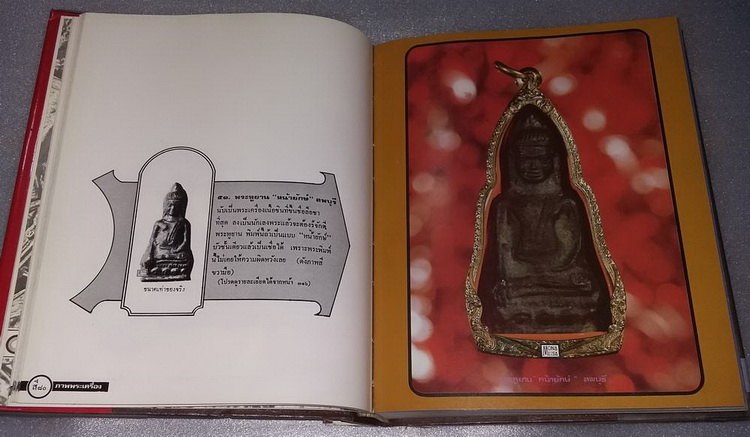 ๕๓. พระหูยาน "หน้ายักษ์" ลพบุรี
นับเป็นพระเครื่องเนื้อชินที่ขึ้นชื่อลือชา
ที่สุด ลงเป็นนักเลงพระแล้วจะต้องรู้จักดี
พระหูยาน พิมพ์นี้ถือเป็นแบบ "หน้ายักษ์"
เพราะพระพิมพ์
นี้ไม่เคยให้ความผิดหวังเลย (ดังภาพสี
ขวามือ)
(โปรดดูรายละเอียดได้จากหน้า ๓๑๖)
ขนาดเท่าของจริง
สี๘๐ ภาพพระเครื่อง
หูยาน "หน้ายักษ์" ลพบุรี